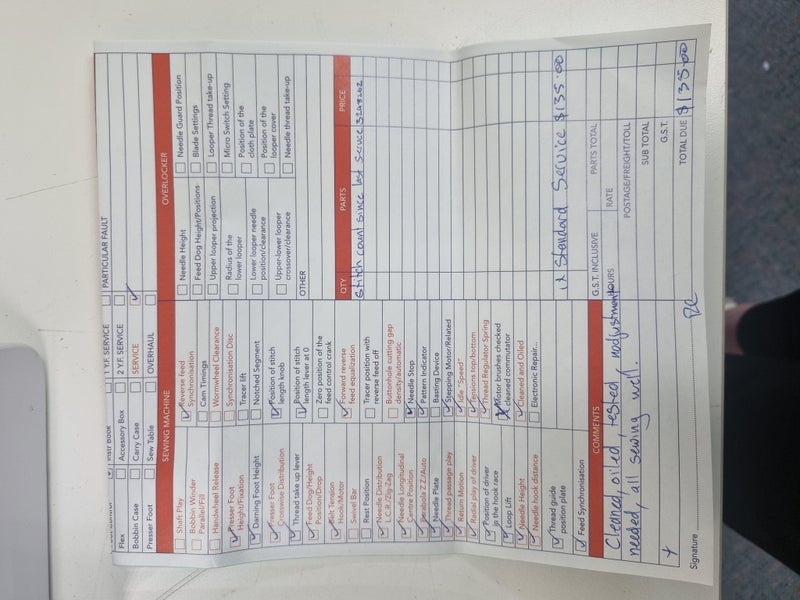 Instr Book
1 Y.F. SERVICE
PARTICULAR FAULT
Flex
Accessory Box
2 Y.F. SERVICE
Bobbin Case
Carry Case
SERVICE
Presser Foot
Sew Table
OVERHAUL
SEWING MACHINE
Shaft Play
Bobbin Winder
Parallel/Fill
Handwheel Release
Presser Foot
Height/Fixation
Darning Foot Height
Presser Foot
Crosswise Distribution
Thread take up lever
Feed Dog/Height
Position/Drop
Belt Tension
Hook/Motor
Swivel Bar
Rest Position
Needle Distribution
L.C.R./Zig Zag
Needle Longitudinal
Centre Position
Parabola Z Z/Auto
Needle Plate
Thread passage play
Return Motion
Radial play of driver
Position of driver
in the hook race
Loop Lift
Needle Height
Needle hook distance
Thread guide
position plate
Feed Synchronisation
Reverse feed
Synchronisation
Cam Timings
Wormwheel Clearance
Synchronisation Disc
Tracer lift
Notched Segment
Position of stitch
length knob
Position of stitch
length lever at 0
Zero position of the
feed control crank
Forward reverse
feed equalization
Tracer position with
reverse feed off
Buttonhole cutting gap
density/automatic
Needle Stop
Pattern Indicator
Basting Device
Stepping Motor/Related
Idle "Speed"
Tensions top/bottom
Thread Regulator Spring
Motor brushes checked
cleaned commutator
Cleaned and Oiled
Electronic Repair...
OVERLOCKER
Needle Height
Feed Dog Height/Positions
Upper looper projection
Radius of the
lower looper
Lower looper needle
position/clearance
Upper-lower looper
crossover/clearance
OTHER
Needle Guard Position
Blade Settings
Looper Thread take-up
Micro Switch Setting
Position of the
cloth plate
Position of the
looper cover
Needle thread take-up
QTY
PARTS
PRICE
Stitch count since last service 3248262
1x Standard Service $135.00
COMMENTS
Cleaned, oiled, tested, no adjustment
needed, all sewing well.
G.S.T. INCLUSIVE
PARTS TOTAL
HOURS
RATE
POSTAGE/FREIGHT/TOLL
SUB TOTAL
G.S.T.
TOTAL DUE $135.00
Signature